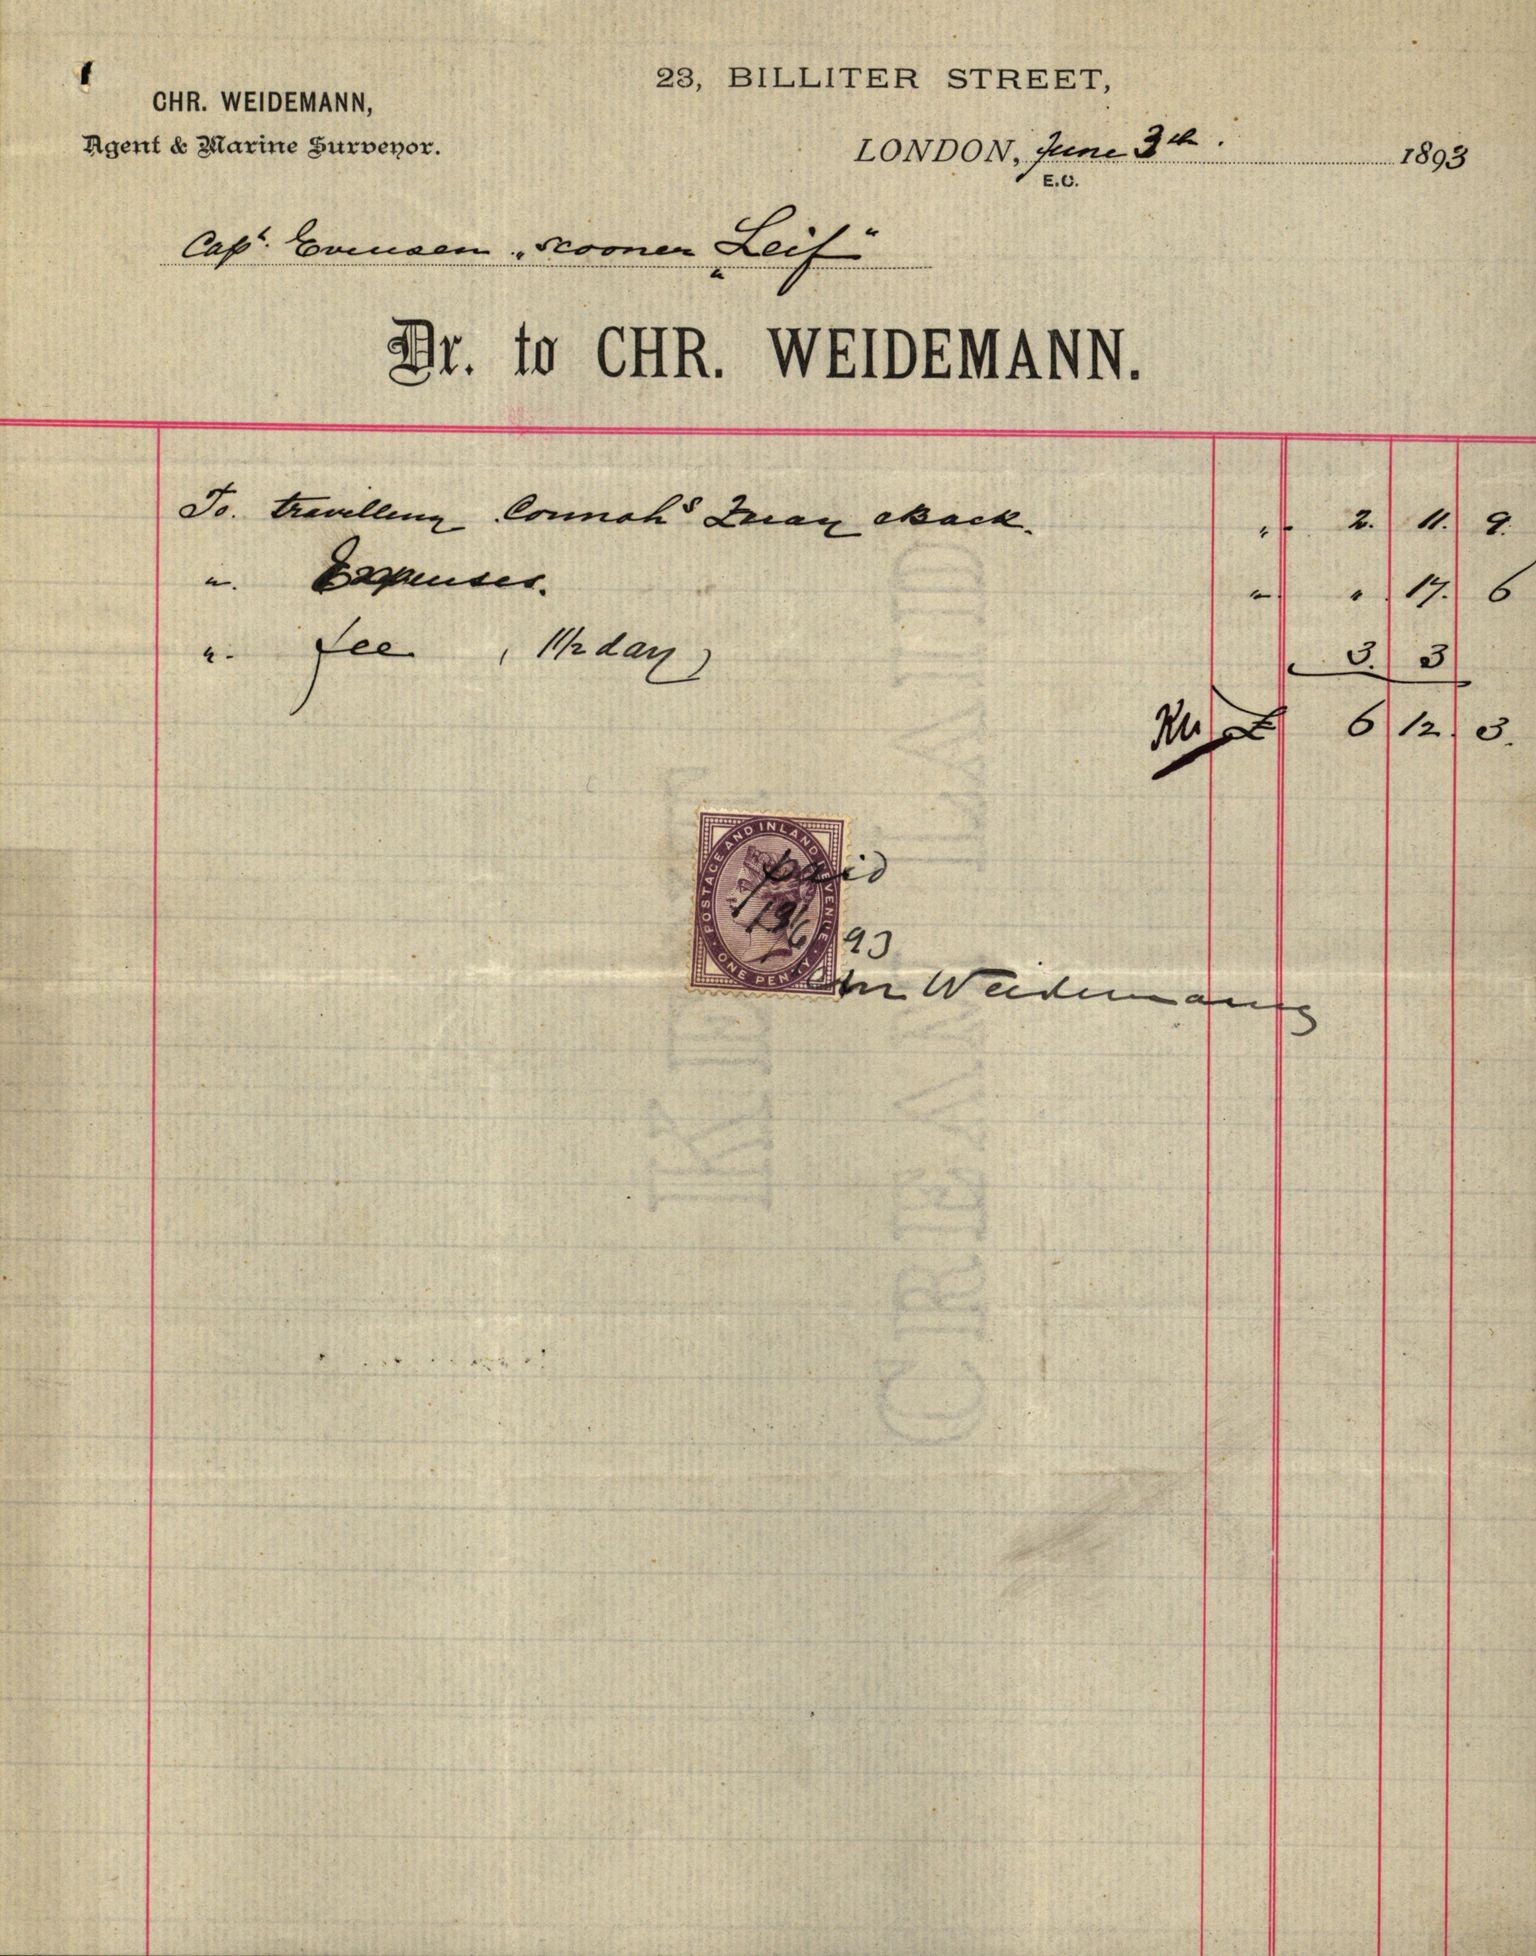 23, BILLITER STREET,
CHR. WEIDEMANN,
Agent & Marine Surveyor.
LONDON, June 3th. 1893
E.C.
Capt. Evensen „scooner „Leif"
Dr. to CHR. WEIDEMANN.
To. travelling Connahs Quay & Back. " 2. 11. 9.
". Expenses. " " 17. 6
". fee (1 1/2 day) 3. 3
£ 6 12. 3.
POSTAGE AND INLAND REVENUE
ONE PENNY
paid
13/6 93
Chr Weidemann
KENT
CREAM LAID